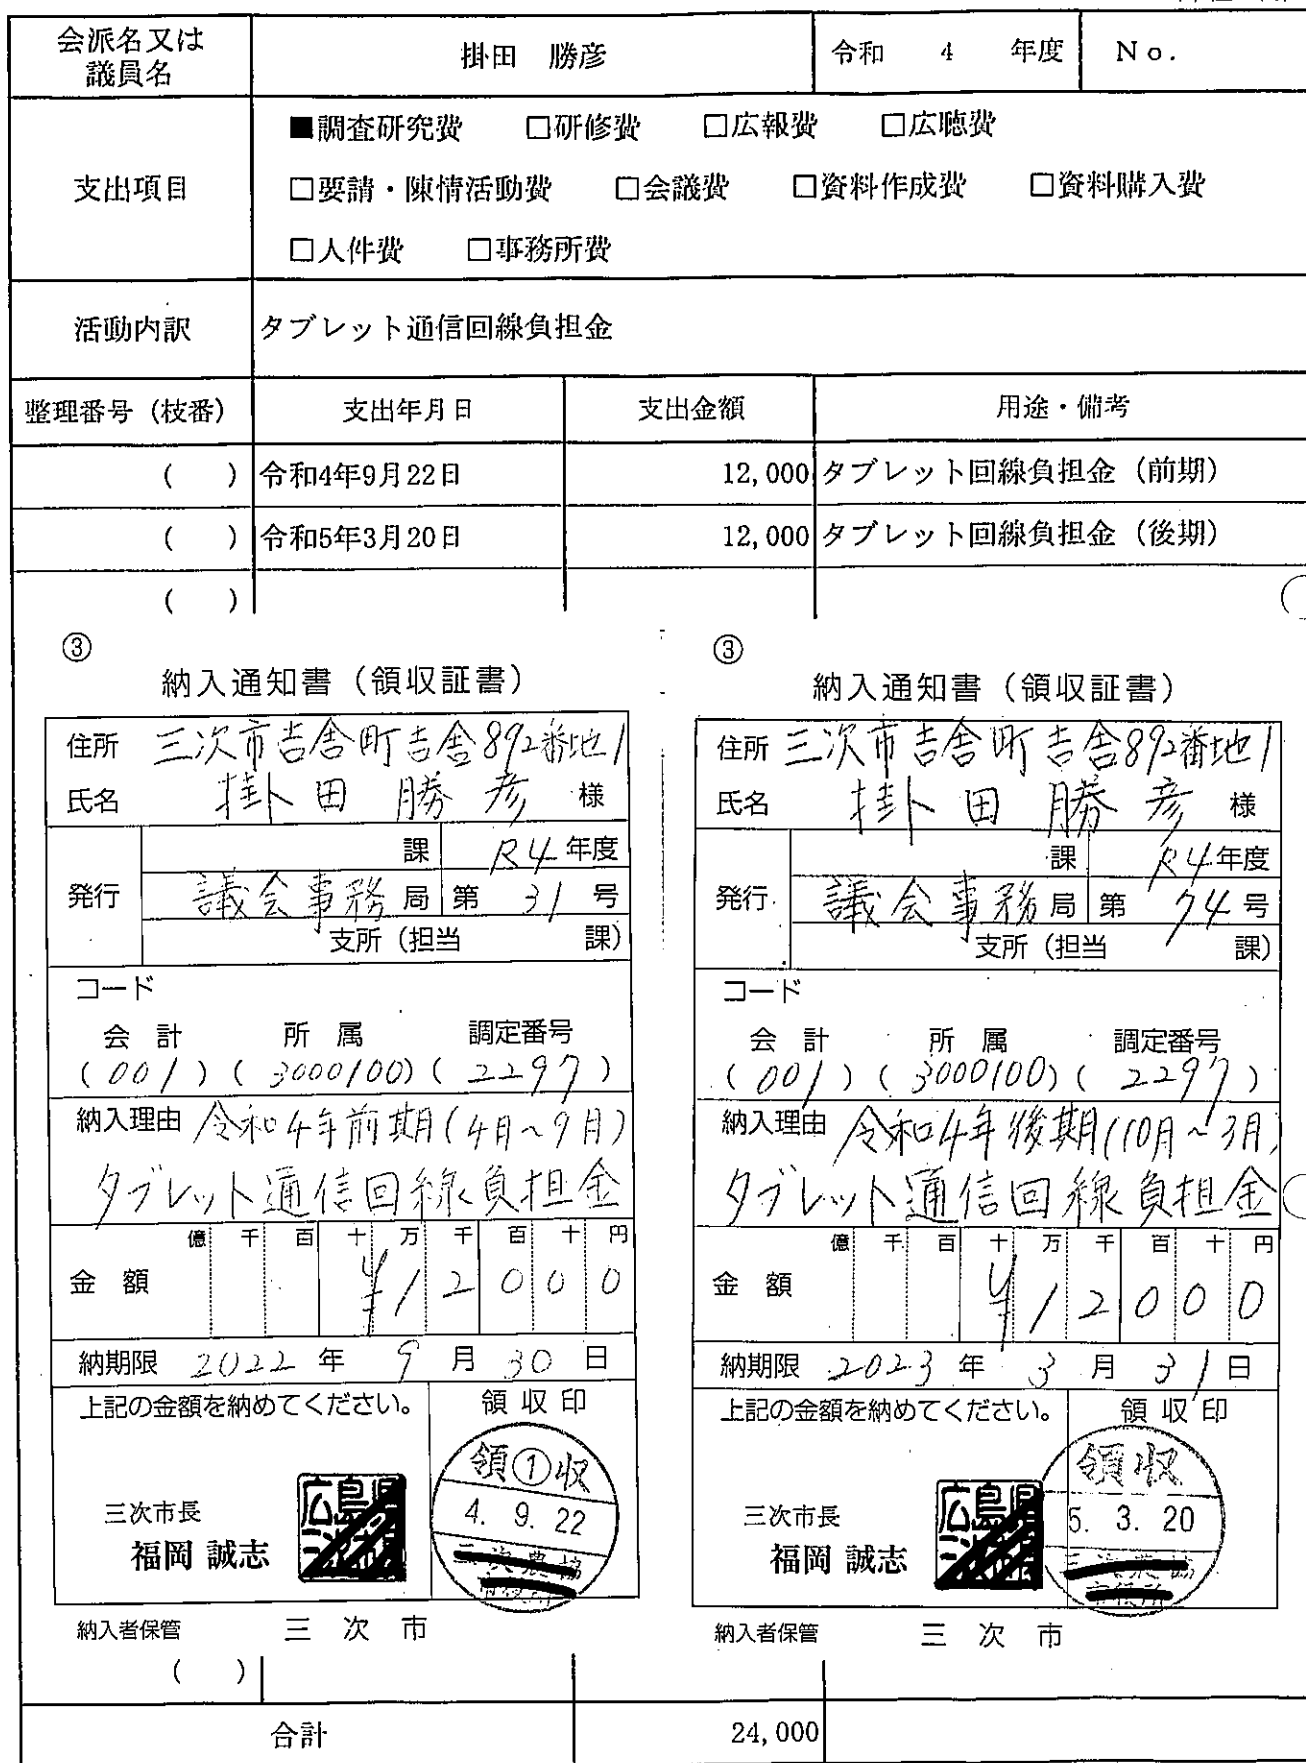 会派名又は
議員名
掛田　勝彦
令和　4　年度
No.
支出項目
■調査研究費　□研修費　□広報費　□広聴費
□要請・陳情活動費　□会議費　□資料作成費　□資料購入費
□人件費　□事務所費
活動内訳
タブレット通信回線負担金
整理番号（枝番）　支出年月日　支出金額　用途・備考
（　）　令和4年9月22日　12,000　タブレット回線負担金（前期）
（　）　令和5年3月20日　12,000　タブレット回線負担金（後期）
（　）
③
納入通知書（領収証書）
住所　三次市吉舎町吉舎892番地1
氏名　掛田　勝彦　様
発行
課　R4年度
議会事務局　第　31　号
支所（担当　　課）
コード
会計　所属　調定番号
(001) (3000100) (2297)
納入理由　令和4年前期（4月～9月）
タブレット通信回線負担金
億　千　百　十　万　千　百　十　円
金額　¥12000
納期限　2022年　9月　30日
上記の金額を納めてください。
領収印
領①収
4. 9. 22
三次市長
福岡 誠志
納入者保管　三次市
③
納入通知書（領収証書）
住所　三次市吉舎町吉舎892番地1
氏名　掛田　勝彦　様
発行
課　R4年度
議会事務局　第　74　号
支所（担当　　課）
コード
会計　所属　調定番号
(001) (3000100) (2297)
納入理由　令和4年後期（10月～3月）
タブレット通信回線負担金
億　千　百　十　万　千　百　十　円
金額　¥12000
納期限　2023年　3月　31日
上記の金額を納めてください。
領収印
領収
5. 3. 20
三次市長
福岡 誠志
納入者保管　三次市
（　）
合計　24,000